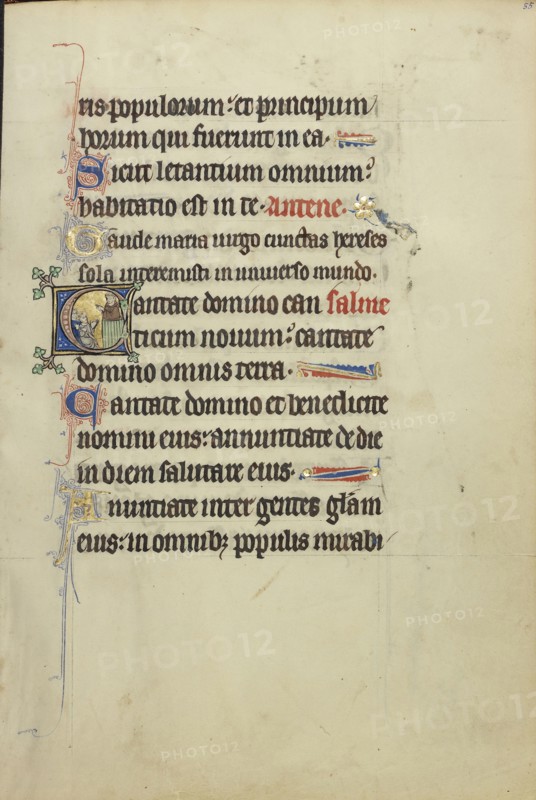 55
ris populorum: et principum
horum qui fuerunt in ea.
Sicut letantium omnium:
habitatio est in te. Antene.
Gaude maria uirgo cunctas hereses
sola interemisti in uniuerso mundo.
Cantate domino can salme
ticum nouum: cantate
domino omnis terra.
Cantate domino et benedicite
nomini eius: annuntiate de die
in diem salutare eius.
Annuntiate inter gentes glam
eius: in omnibꝫ populis mirabi
PHOTO12